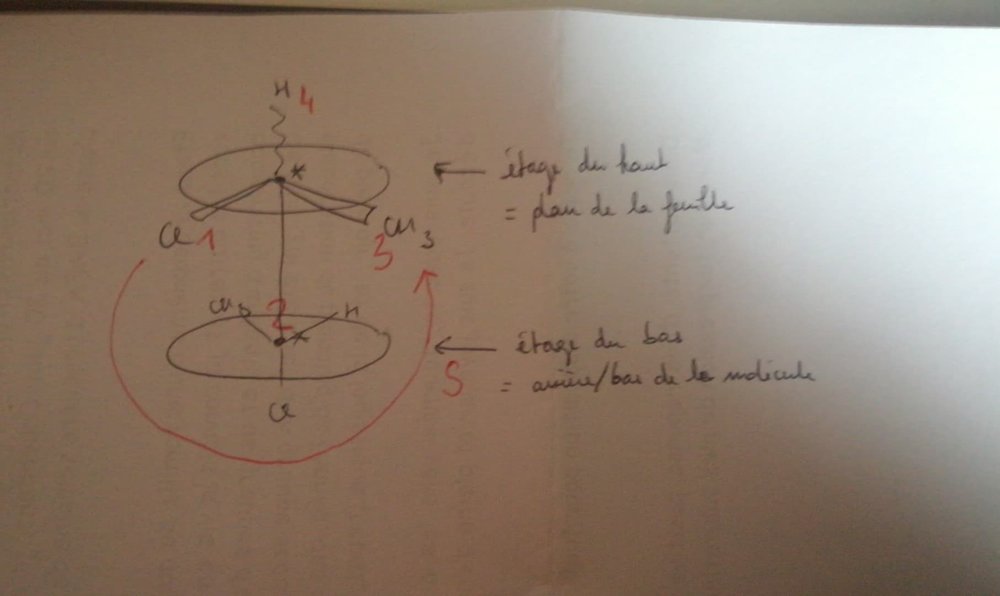 H 4
*
← étage du haut
= plan de la feuille
Cl 1
CH3 3
CH3 2 H
*
← étage du bas
S = arrière/bas de la molécule
Cl